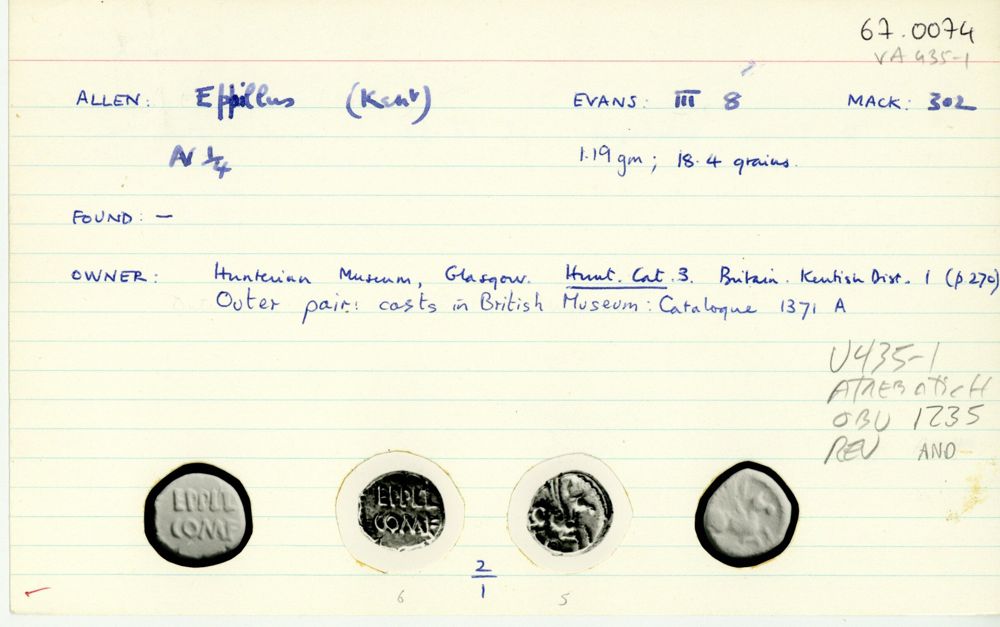 67.0074
VA 435-1
ALLEN: Eppillus (Kent) EVANS: III 8 MACK: 302
AV 1/4 1.19 gm; 18.4 grains.
FOUND: —
OWNER: Hunterian Museum, Glasgow. Hunt. Cat. 3. Britain. Kentish Dist. 1 (p.270)
Outer pair: casts in British Museum: Catalogue 1371 A
V435-1
ATREBATICH
OBV 1235
REV AND
EPPIL
COMF
EPPIL
COMF
2/1
6 5